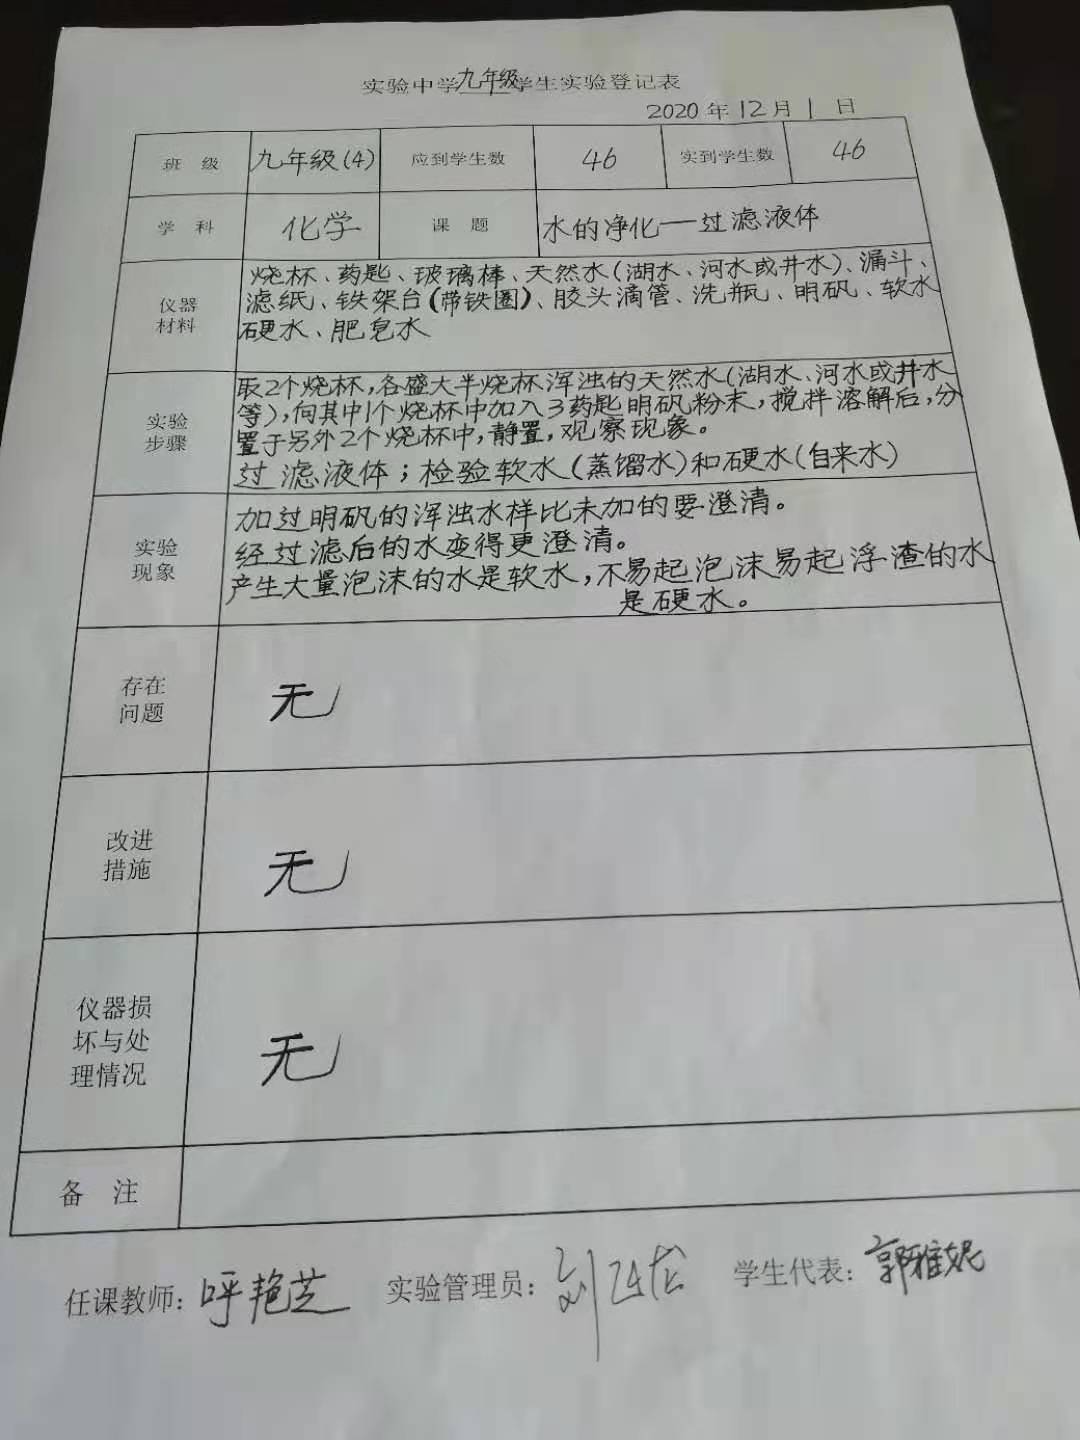 实验中学九年级学生实验登记表
2020年12月1日
班级 九年级(4) 应到学生数 46 实到学生数 46
学科 化学 课题 水的净化——过滤液体
仪器
材料
烧杯、药匙、玻璃棒、天然水(湖水、河水或井水)、漏斗、
滤纸、铁架台(带铁圈)、胶头滴管、洗瓶、明矾、软水
硬水、肥皂水
实验
步骤
取2个烧杯,各盛大半烧杯浑浊的天然水(湖水、河水或井水
等),向其中1个烧杯中加入3药匙明矾粉末,搅拌溶解后,分
置于另外2个烧杯中,静置,观察现象。
过滤液体;检验软水(蒸馏水)和硬水(自来水)
实验
现象
加过明矾的浑浊水样比未加的要澄清。
经过滤后的水变得更澄清。
产生大量泡沫的水是软水,不易起泡沫易起浮渣的水
是硬水。
存在
问题
无
改进
措施
无
仪器损
坏与处
理情况
无
备注
任课教师:呼艳芝 实验管理员:刘 学生代表:郭雅妮